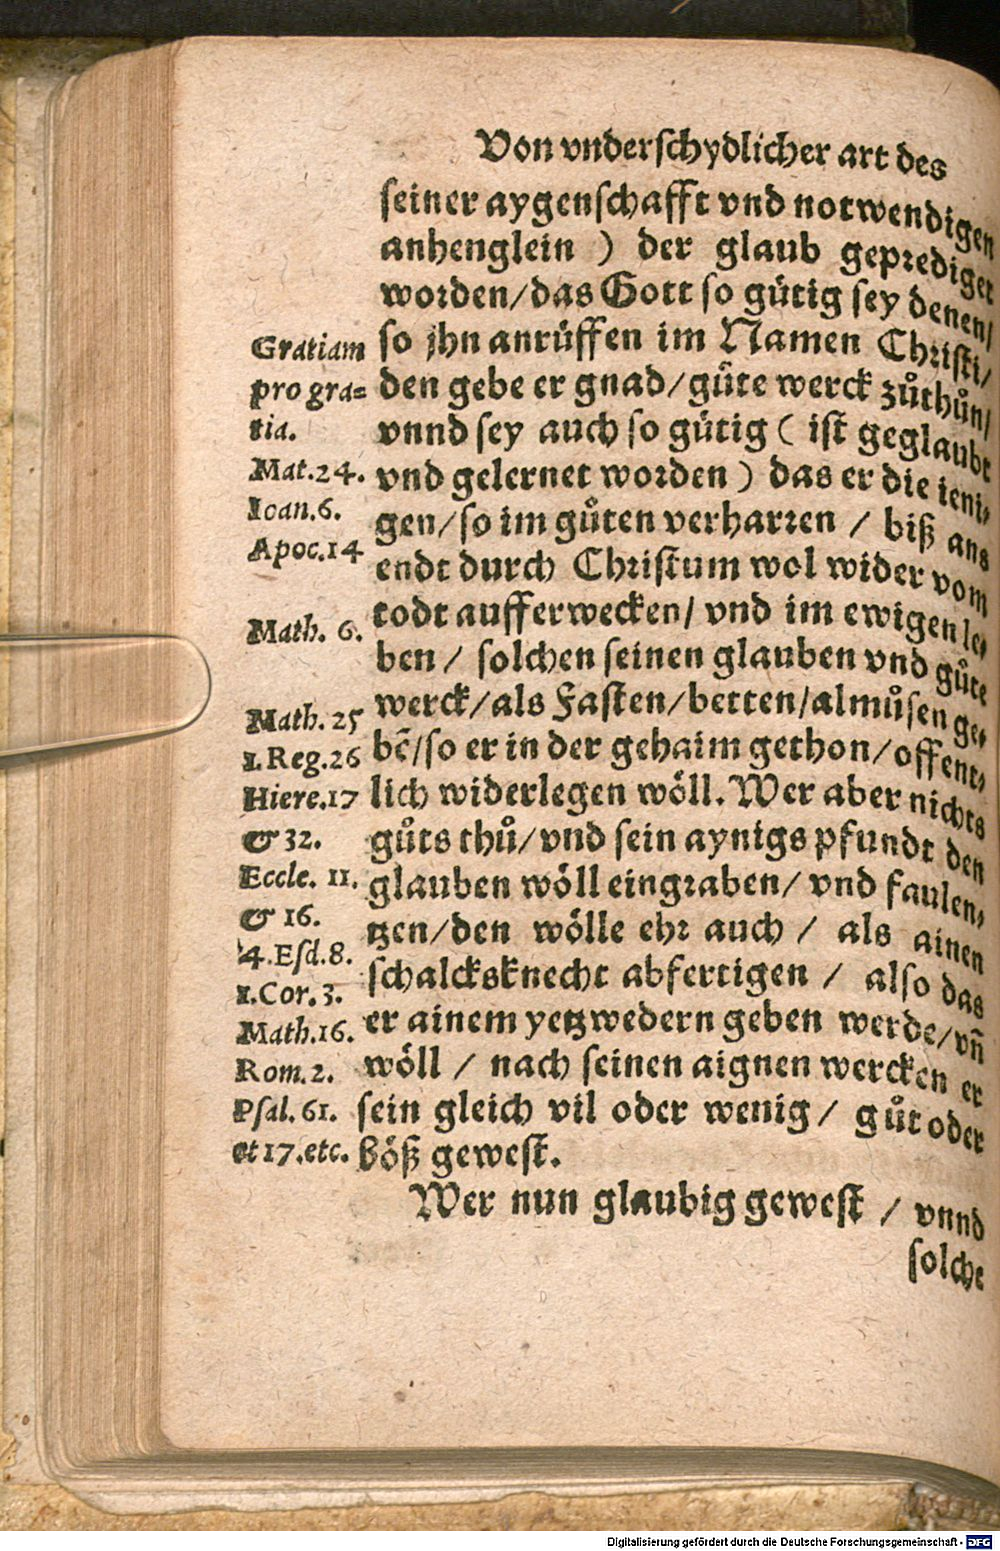 Von vnderschydlicher art des
seiner aygenschafft vnd notwendigen
anhenglein ) der glaub geprediget
worden/das Gott so gütig sey denen/
so jhn anrüffen im Namen Christi/
den gebe er gnad/gůte werck zůthůn/
vnnd sey auch so gütig ( ist geglaubt
vnd gelernet worden ) das er die ieni-
gen/so im gůten verharren / biß ans
endt durch Christum wol wider vom
todt aufferwecken/ vnd im ewigen le-
ben / solchen seinen glauben vnd gůte
werck/als Fasten/betten/almůsen ge-
bē/so er in der gehaim gethon/offent-
lich widerlegen wöll. Wer aber nichts
gůts thů/vnd sein aynigs pfundt den
glauben wöll eingraben/ vnd faulen-
tzen/den wölle ehr auch / als ainen
schalcksknecht abfertigen / also das
er ainem yetzwedern geben werde/vn̄
wöll / nach seinen aignen wercken er
sein gleich vil oder wenig/ gůt oder
böß gewest.
Wer nun glaubig gewest / vnnd
solche
Gratiam
pro gra=
tia.
Mat.24.
Ioan.6.
Apoc.14
Math. 6.
Math. 25
1.Reg.26
Hiere.17
& 32.
Eccle. 11.
& 16.
4.Esd.8.
1.Cor.3.
Math.16.
Rom.2.
Psal.61.
et 17.etc.
Digitalisierung gefördert durch die Deutsche Forschungsgemeinschaft - DFG